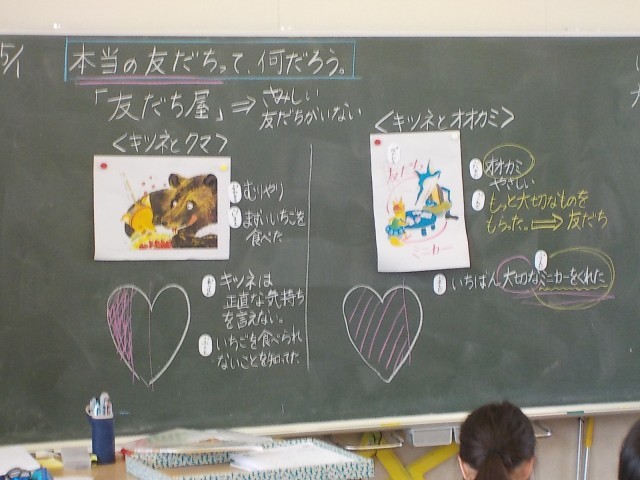 5/1
本当の友だちって、何だろう。
「友だち屋」⇒ さみしい
友だちがいない
<キツネとクマ>
むりやり
まずいいちごを
食べた
キツネは
正直な気持ち
を言えない。
いちごを食べられ
ないことを知ってた
<キツネとオオカミ>
友だち
ミニカー
オオカミ
やさしい
もっと大切なものを
もらった。⇒友だち
いちばん大切なミニカーをくれた